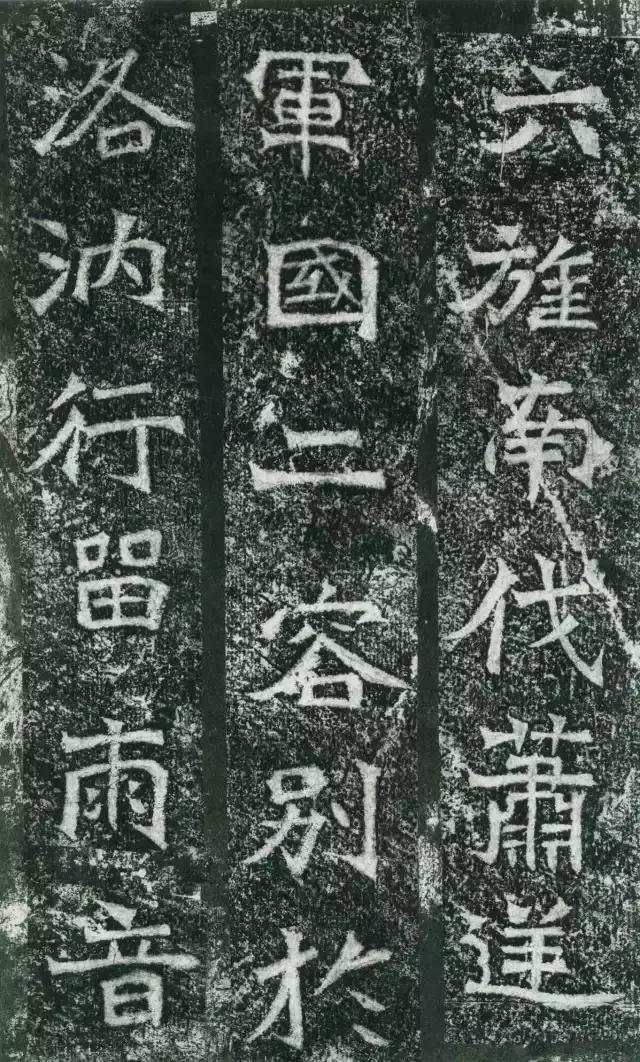 六旌南伐蕭逆
軍國二容別於
洛汭行留雨音